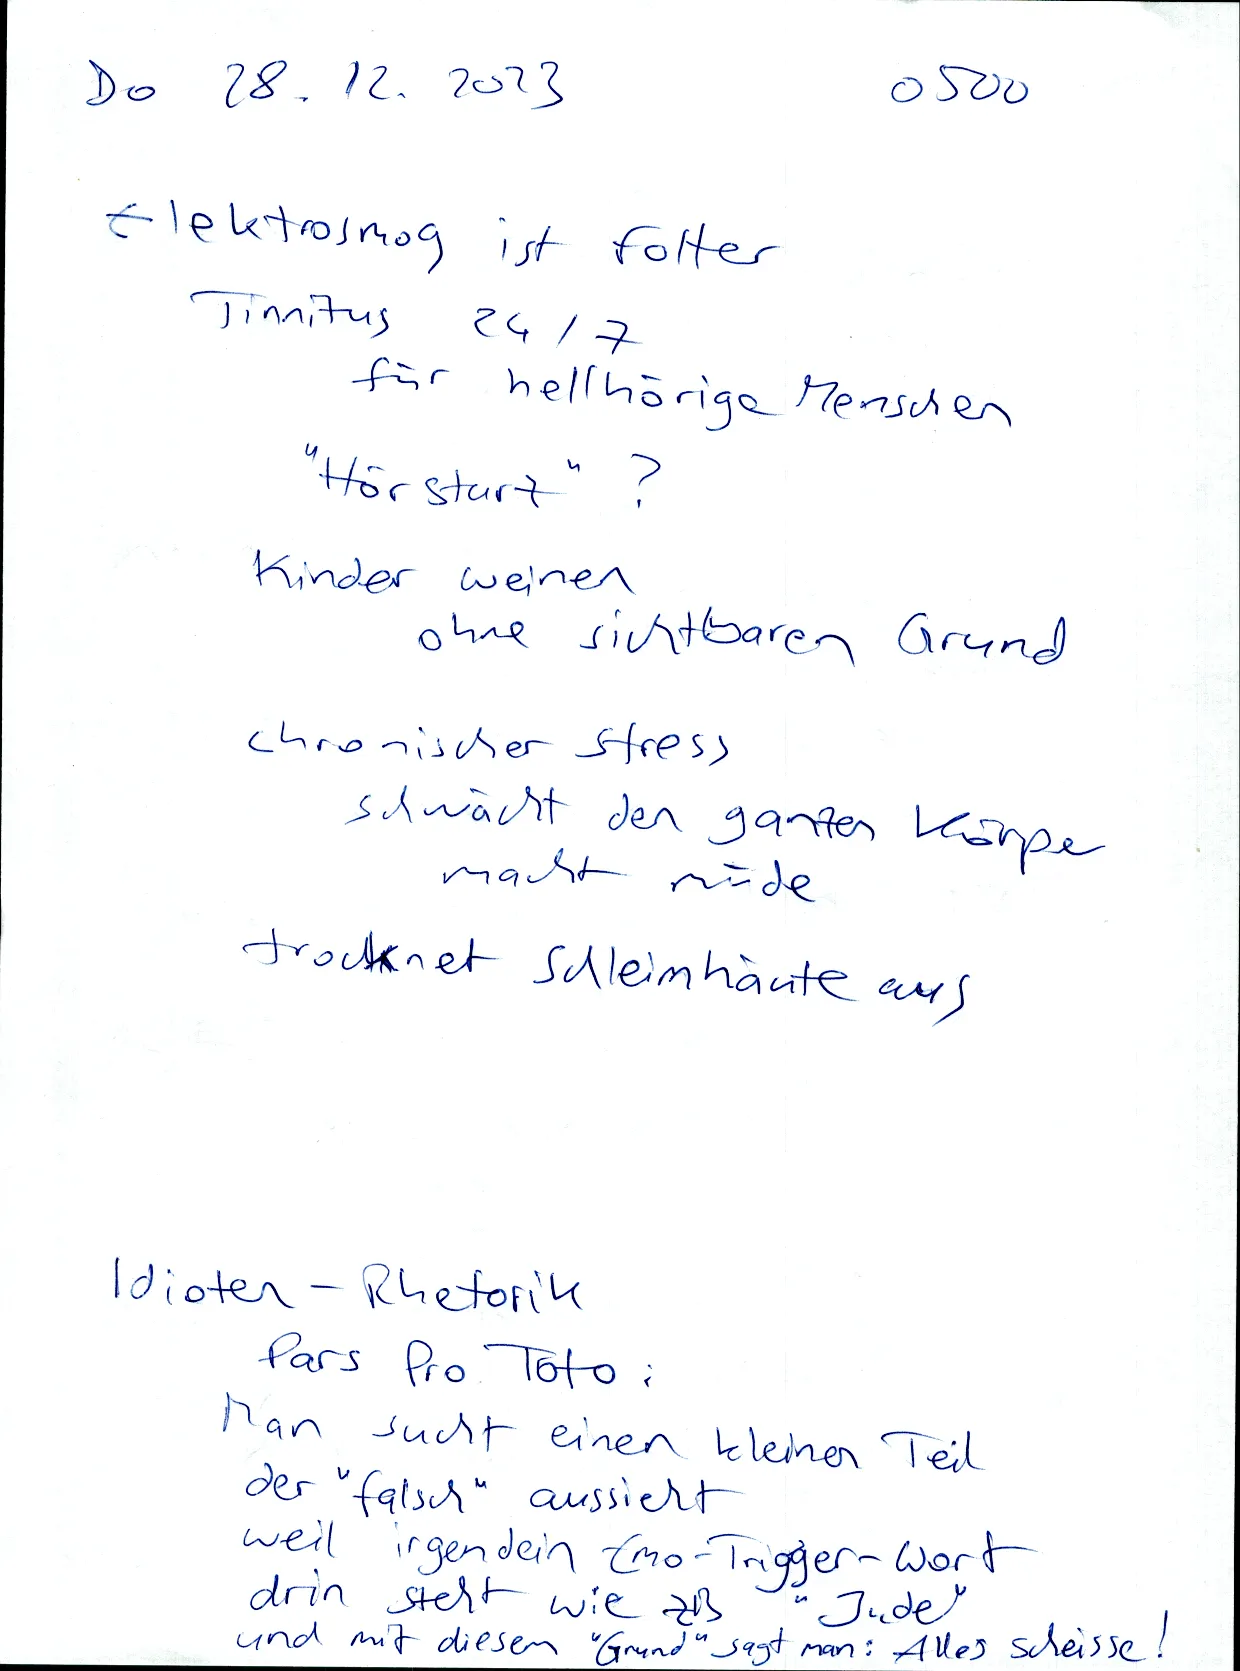 Do 28.12.2023 0500
Elektrosmog ist Folter
Tinnitus 24/7
für hellhörige Menschen
"Hörsturz"?
Kinder weinen
ohne sichtbaren Grund
chronischer Stress
schwächt den ganzen Körpe
macht müde
trocknet Schleimhäute aus
Idioten-Rhetorik
Pars Pro Toto:
Man sucht einen kleinen Teil
der "falsch" aussieht
weil irgendein Emo-Trigger-Wort
drin steht wie zB "Jude"
und mit diesem "Grund" sagt man: Alles scheisse!